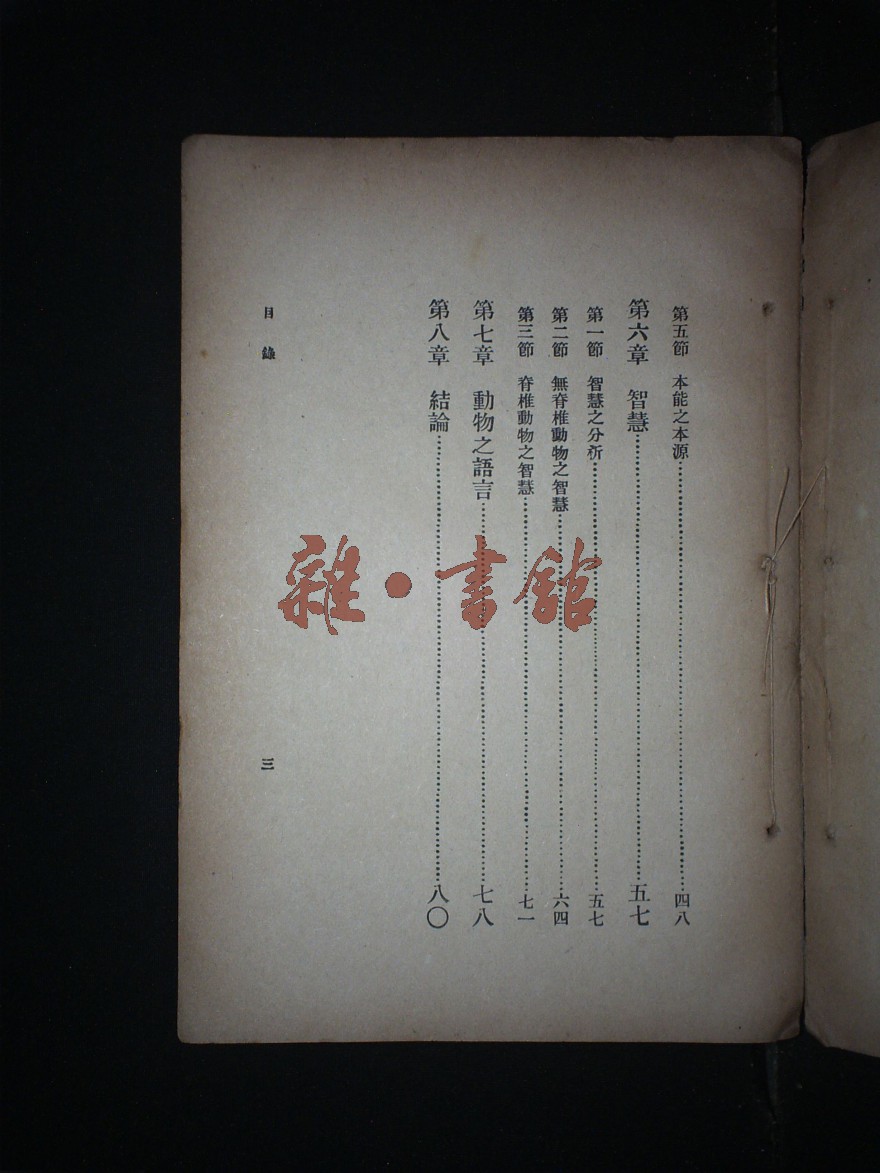 第五節 本能之本源……四八
第六章 智慧……五七
第一節 智慧之分析……五七
第二節 無脊椎動物之智慧……六四
第三節 脊椎動物之智慧……七一
第七章 動物之語言……七八
第八章 結論……八〇
目錄
三
雜·書館